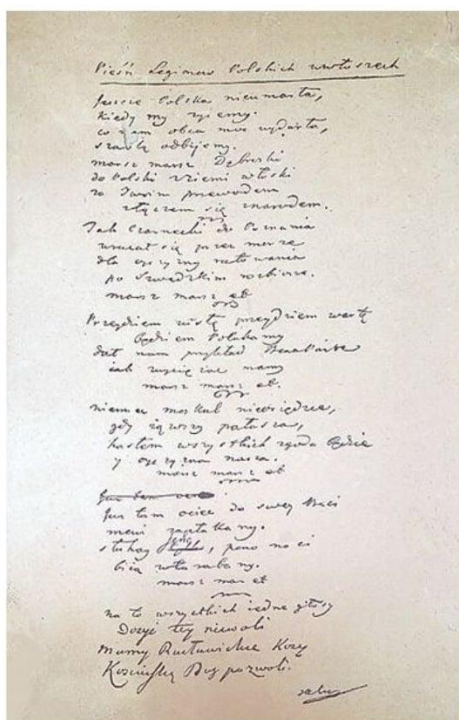 Pieśń Legionow Polskich wewłoszech
Jeszcze Polska nieumarła,
kiedy my żyiemy.
co nam obca moc wydarła,
szablą odbijemy.
marsz marsz Dąbrski
do Polski z ziemi włoski
za Twoim przewodem
złączem się znarodem.
Jak Czarnecki do Poznania
wracał się przez morze
dla oyczyzny ratowania
po Szwedzkim rozbiorze.
marsz marsz et
Przejdziem Wisłę przejdziem Wartę
Będziem Polakamy
dał nam przykład Bonaparte
jak zwyciężać mamy
marsz marsz et.
niemiec moskal nieosiędzie,
gdy iąwszy pałasza,
hasłem wszystkich zgoda będzie
y oyczyzna nasza.
marsz marsz et
Juz tam ociec
Juz tam ociec do swey Basi
mowi zapłakany.
słuchay, pono nasi
bią w tarabany.
marsz mar et
na to wszystkich iedne głosy
Dosyć tey niewoli
Mamy Racławickie Kosy
Kosciuszkę Bog pozwoli.